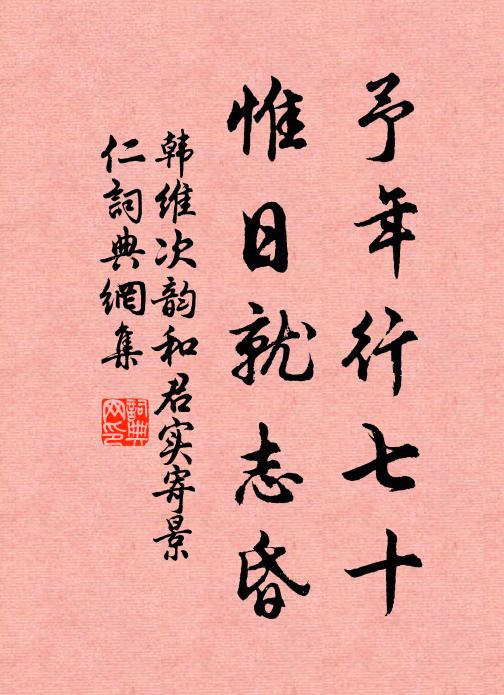 予年行七十
惟日就志昏
韩维次韵和君实寄景
仁詞典網集
詞典網印